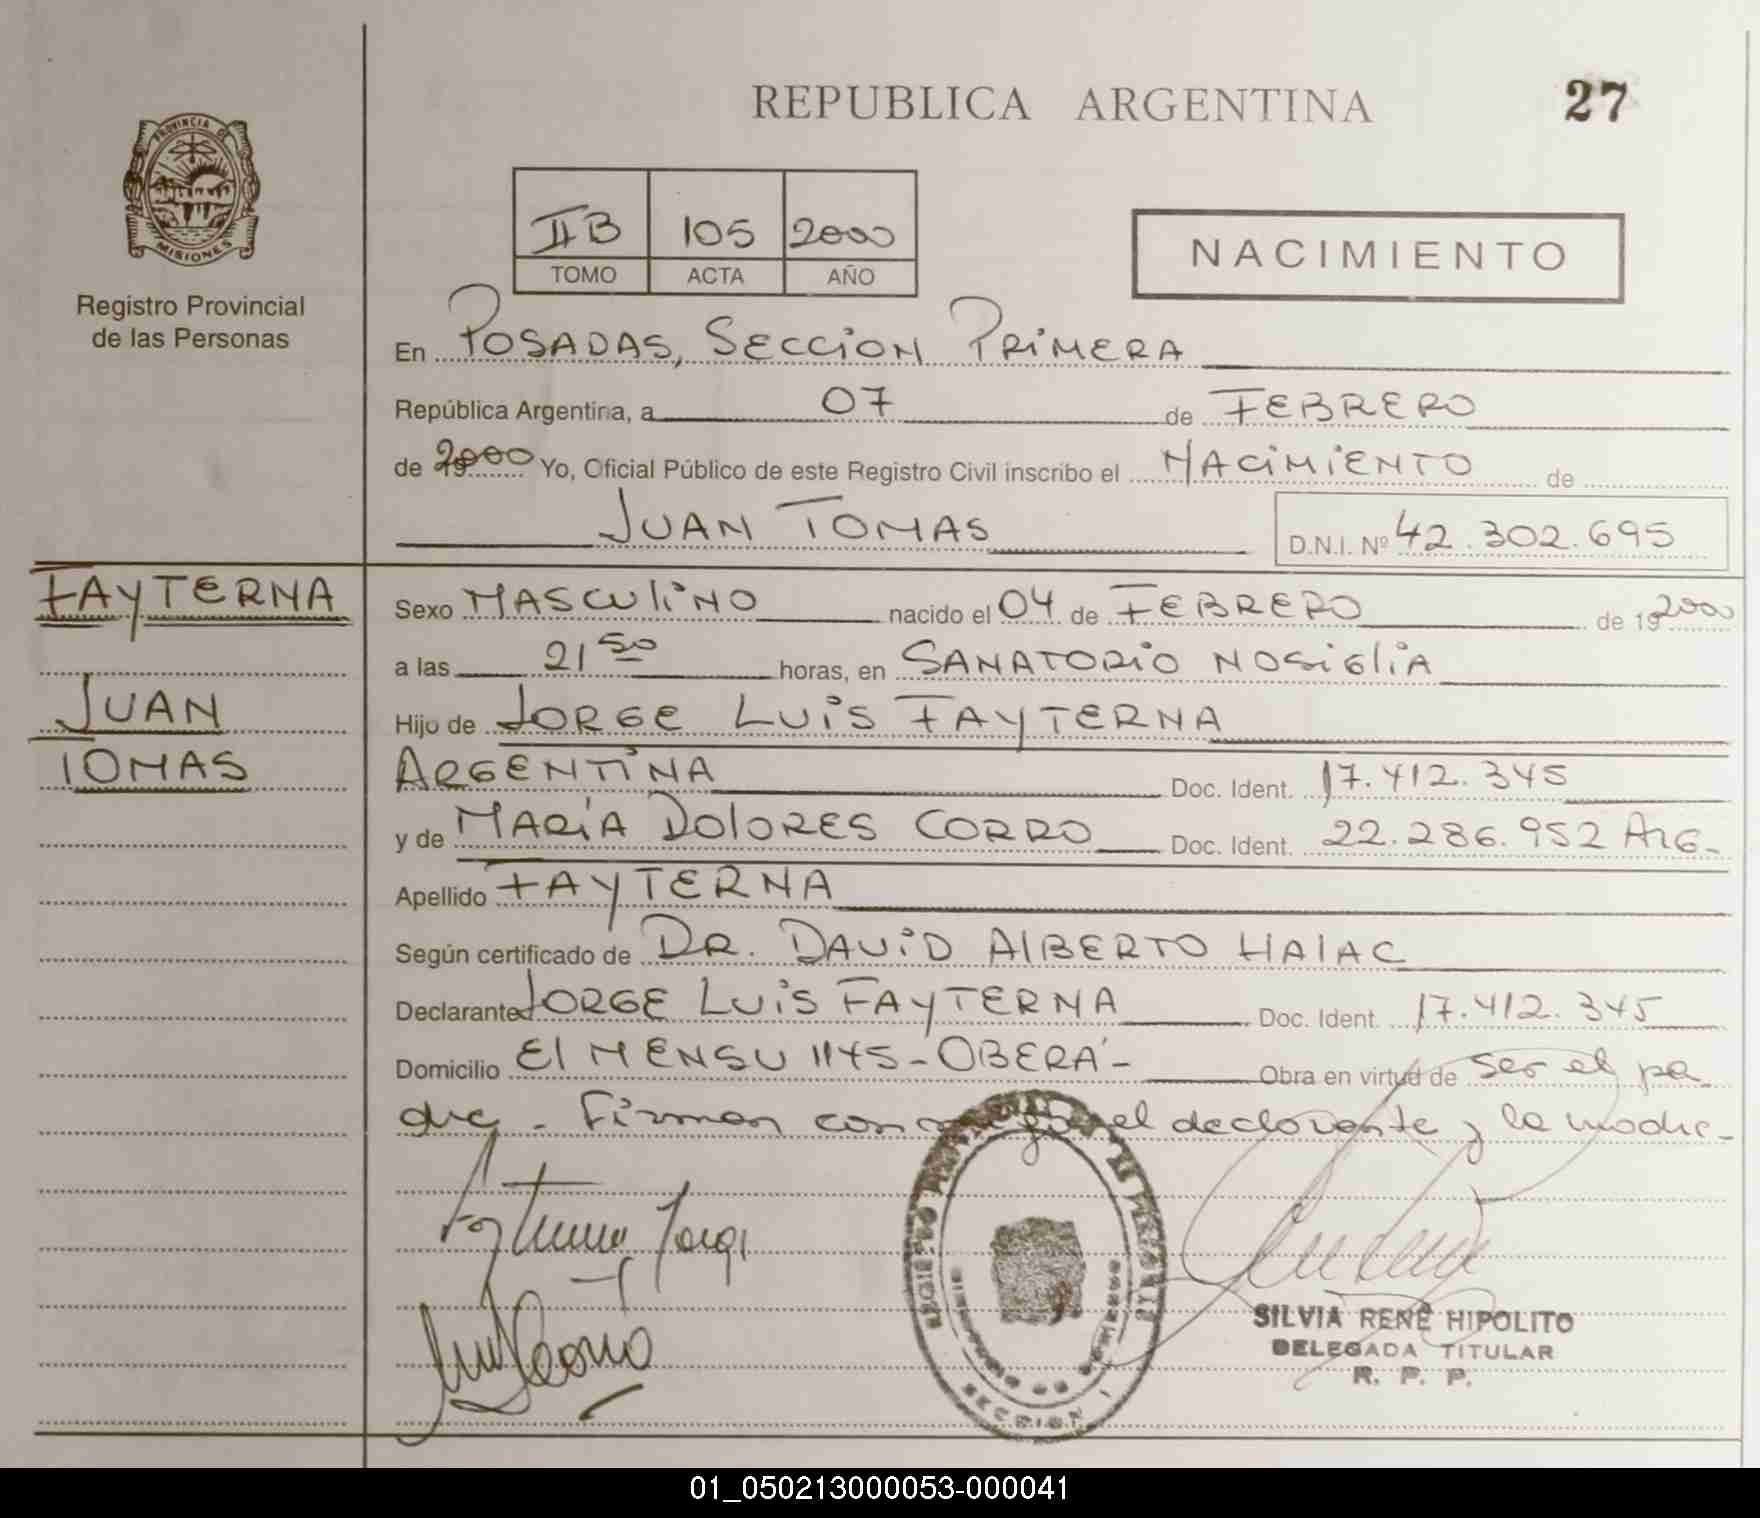 REPUBLICA ARGENTINA
27
PROVINCIA DE
MISIONES
Registro Provincial
de las Personas
IIB 105 2000
TOMO ACTA AÑO
NACIMIENTO
En POSADAS, SECCION PRIMERA
República Argentina, a 07 de FEBRERO
de 2000 Yo, Oficial Público de este Registro Civil inscribo el NACIMIENTO de
JUAN TOMAS D.N.I. Nº 42.302.695
FAYTERNA
JUAN
TOMAS
Sexo MASCULINO nacido el 04 de FEBRERO de 19 2000
a las 21 50 horas, en SANATORIO NOSIGLIA
Hijo de JORGE LUIS FAYTERNA
ARGENTINA Doc. Ident. 17.412.345
y de MARIA DOLORES CORRO Doc. Ident. 22.286.952 ARG-
Apellido FAYTERNA
Según certificado de DR. DAVID ALBERTO HALAC
Declarante JORGE LUIS FAYTERNA Doc. Ident. 17.412.345
Domicilio El MENSU 1145-OBERÁ- Obra en virtud de ser el pa
dre - Firman conmigo el declarante y la madre-
Fayterna Jorge
SECCION 1
SILVIA RENÉ HIPOLITO
DELEGADA TITULAR
R. P. P.
01_050213000053-000041